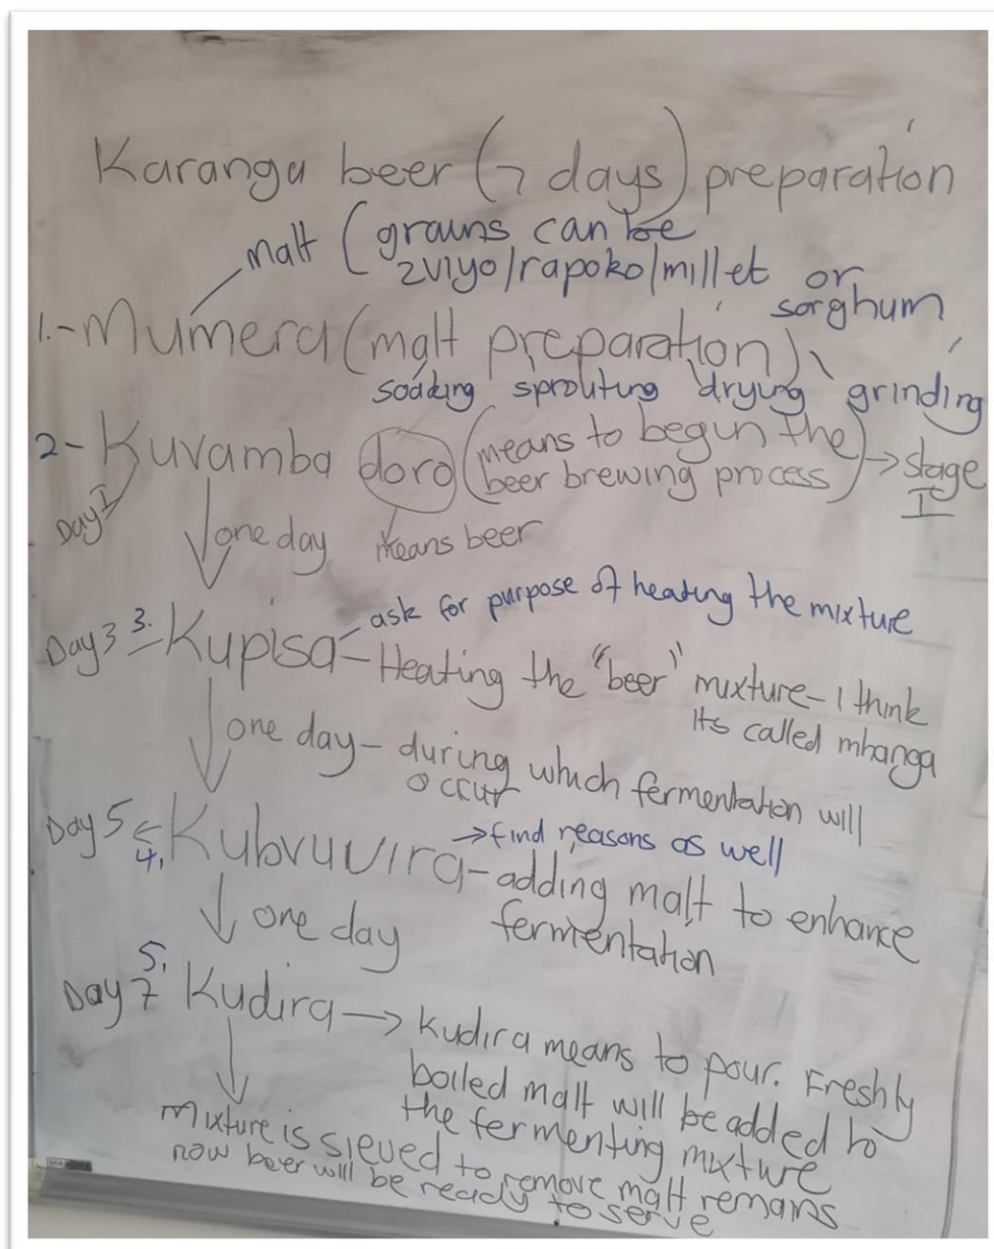 Karanga beer (7 days) preparation
malt (grains can be
zviyo/rapoko/millet or
sorghum
1.- Mumera (malt preparation)
soaking sprouting drying grinding
2- Kuvamba doro (means to begin the
beer brewing process) → stage
I
Day I
one day means beer
ask for purpose of heating the mixture
Day 3 3. Kupisa - Heating the "beer" mixture - I think
its called mhanga
one day - during which fermentation will
occur
→ find reasons as well
Day 5 4. Kubvuvira - adding malt to enhance
fermentation
one day
5.
Day 7 Kudira → Kudira means to pour. Freshly
boiled malt will be added to
the fermenting mixture
Mixture is sieved to remove malt remains
now beer will be ready to serve